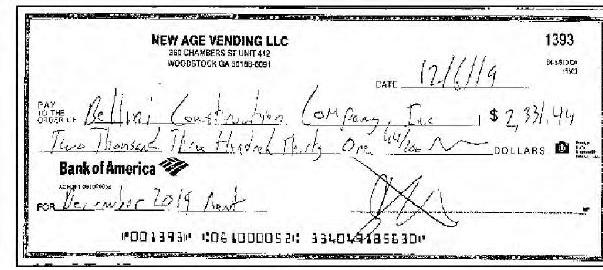 NEW AGE VENDING LLC
1393
360 CHAMBERS ST UNIT 412
WOODSTOCK GA 30188-6091
DATE 12/6/19
PAY TO THE ORDER OF Construction Company, Inc $ 2,331.44
Two Thousand Three Hundred Thirty One 44/100 DOLLARS
Bank of America
FOR December 2019 Rent
⑈001393⑈ ⑆061000052⑆ 334049185630⑈